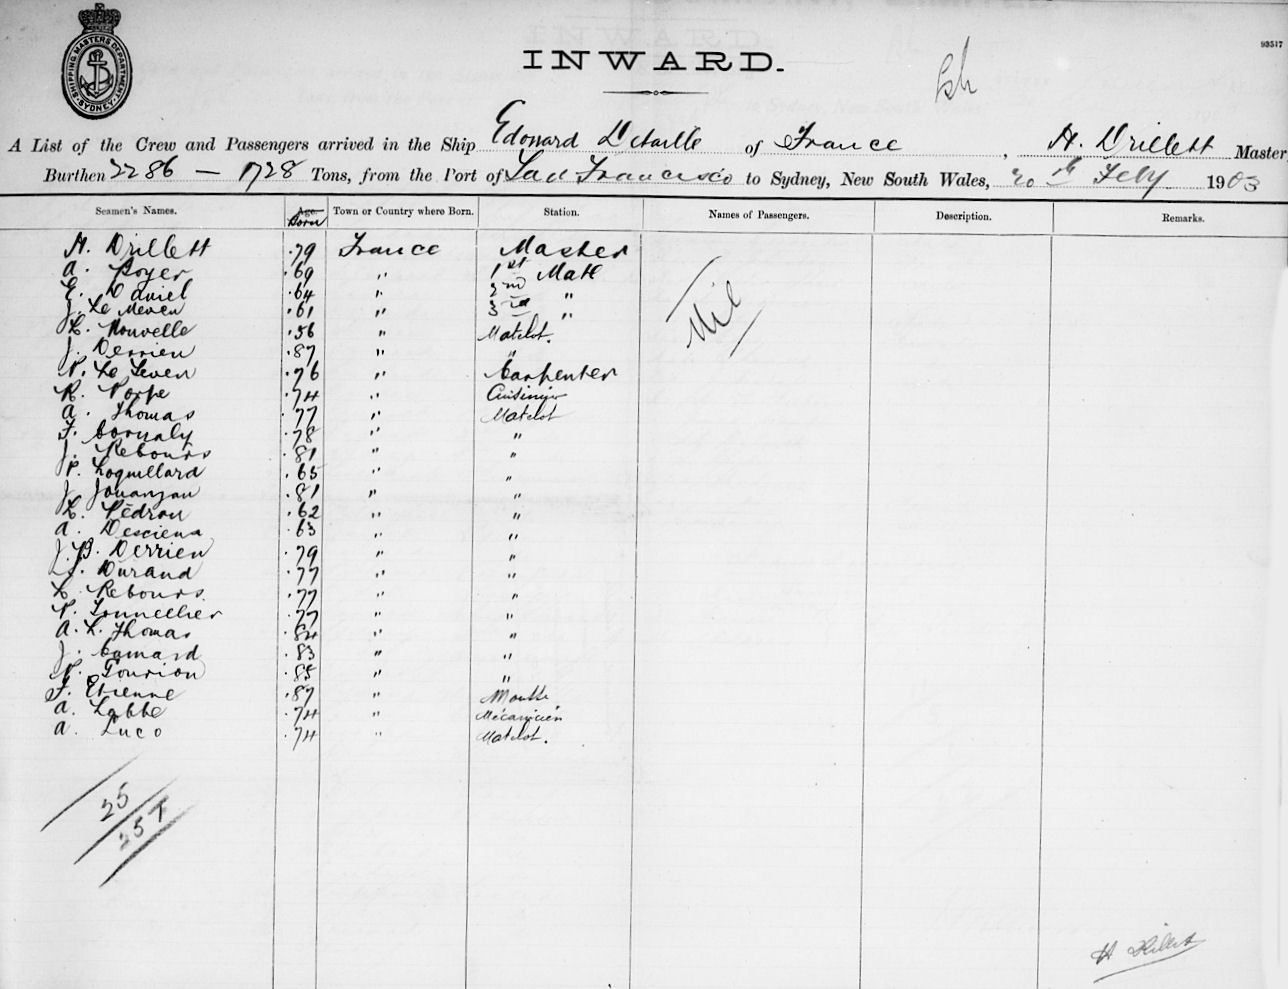 SHIPPING MASTERS DEPARTMENT SYDNEY
93517
INWARD.
A List of the Crew and Passengers arrived in the Ship Edouard Detaille of France, H. Drillett Master
Burthen 2286 — 1728 Tons, from the Port of San Francisco to Sydney, New South Wales, 20th Feby 1903
Seamen's Names. Age. Born Town or Country where Born. Station. Names of Passengers. Description. Remarks.
H. Drillett .79 France Master
A. Boyer .69 " 1st Mate
E. Daniel .64 " 2nd "
J. Le Meven .61 " 3rd "
Nil
L. Nouvelle .56 " Matelot.
J. Derrien .87 " "
P. Le Leven .76 " Carpenter
R. Porpe .74 " Cuisinier
A. Thomas .77 " Matelot
F. Cornaly .78 " "
J. Rebours .81 " "
P. Loquillard .65 " "
J. Jouanjan .81 " "
L. Pédron .62 " "
A. Desciena .63 " "
J.B. Derrien .79 " "
L.J. Durand .77 " "
L. Rebours. .77 " "
P. Tonnellier .77 " "
A. L. Thomas .84 " "
J. Camard .83 " "
P. Tourion .85 " "
F. Etienne .87 " Mousse
A. Labbe .74 " Mécanicien
A. Luco .74 " Matelot.
25
25 +
H Drillett